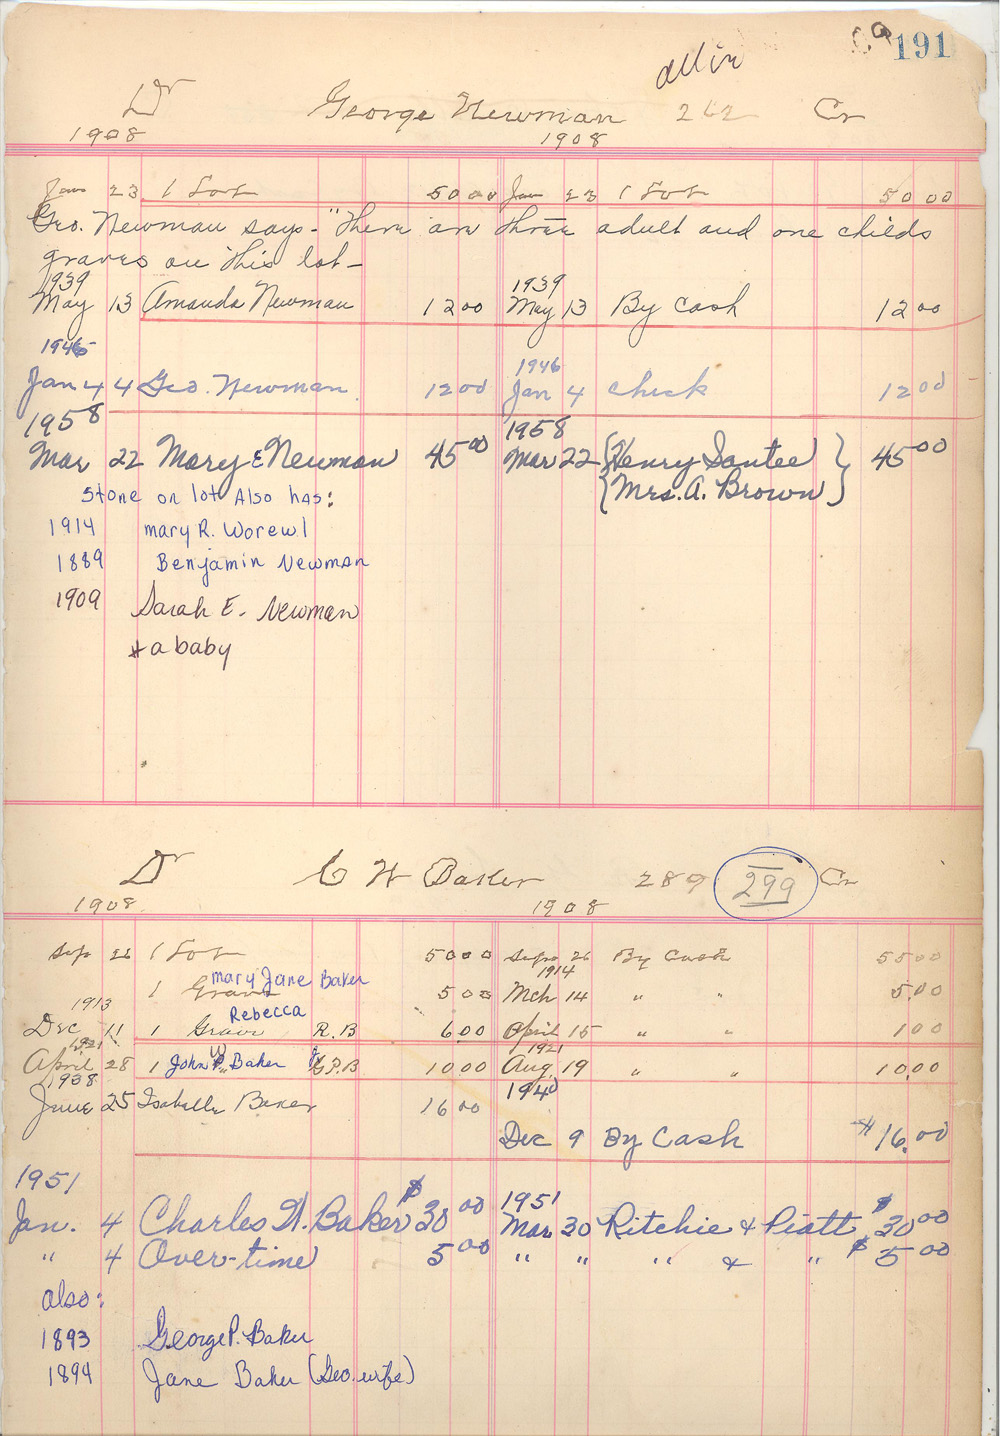 191
all in
Dr George Newman 262 Cr
1908 1908
Jan 23 1 Lot 50 00 Jan 23 1 Lot 50 00
Geo. Newman says - "There are three adult and one childs
graves on this lot -
1939 1939
May 13 Amanda Newman 12 00 May 13 By Cash 12 00
1946 1946
Jan 4 4 Geo. Newman 12 00 Jan 4 Check 12 00
1958 1958
Mar 22 Mary E Newman 45 00 Mar 22 {Henry Santee} 45 00
{Mrs. A. Brown}
Stone on lot Also has:
1914 Mary R. Worewl
1889 Benjamin Newman
1909 Sarah E. Newman
+ a baby
Dr C W Baker 289 299 Cr
1908 1908
Sep 26 1 Lot 50 00 Sept 26 By Cash 55 00
Mary Jane Baker 1914
1 Grave 5 00 Mch 14 " " 5.00
1913 Rebecca
Dec 11 1 Grave R.B 6 00 April 15 " " 1 00
1921 W 1921
April 28 1 John Baker G.P.B 10 00 Aug 19 " " 10.00
1938 1940
June 25 Isabelle Baker 16 00
Dec 9 By Cash $16.00
1951 1951
Jan. 4 Charles H. Baker $30 00 Mar 30 Ritchie & Piatt $30 00
" 4 Over-time 5 00 " " " & " $5 00
also:
1893 George P. Baker
1894 Jane Baker (Geo. wife)